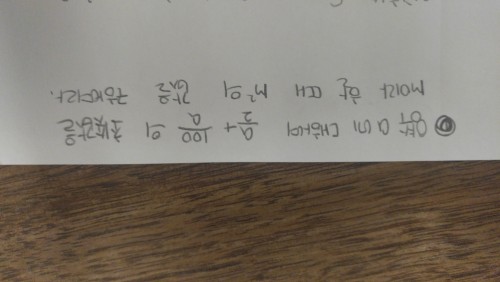 양수 a에 대하여 a/2 + 100/a 의 최솟값을
m이라 할 때 m²의 값을 구하여라.